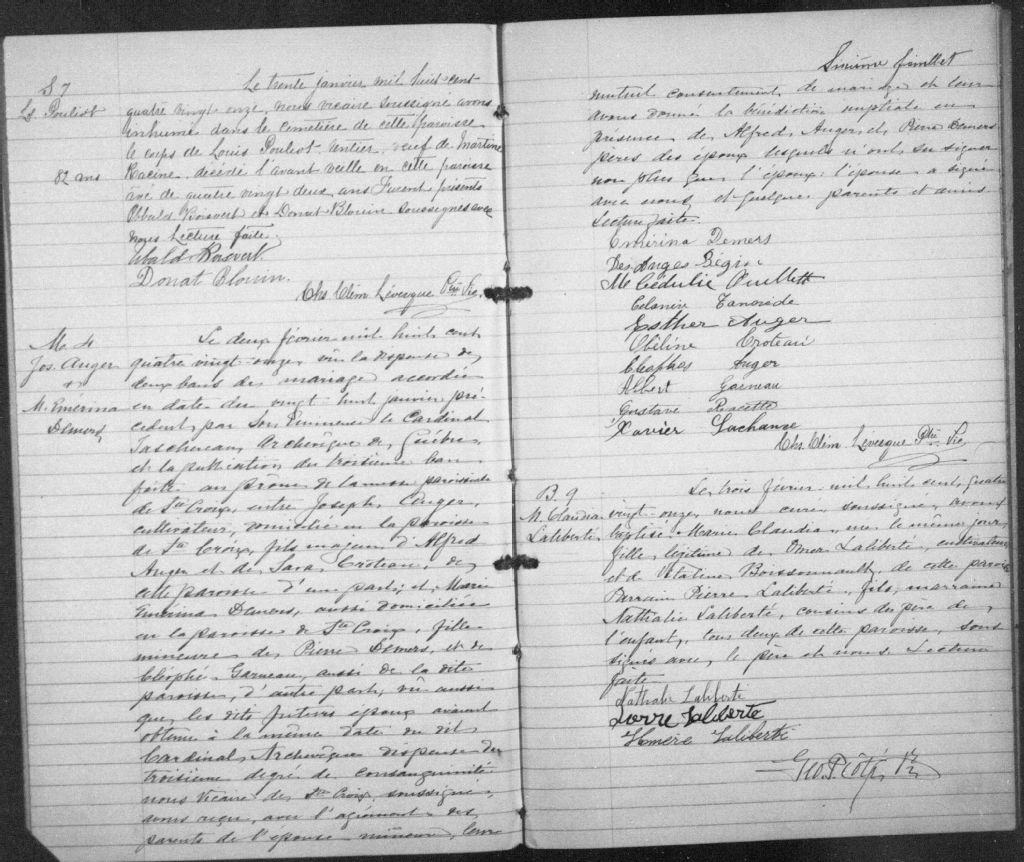 S 7
Ls Pouliot
82 ans
Le trente janvier mil huit cent
quatre vingt onze, nous vicaire soussigné avons
inhumé dans le cemetière de cette paroisse
le corps de Louis Pouliot, rentier, veuf de Martine
Racine, décédé l'avant veille en cette paroisse
âgé de quatre vingt deux ans Furent présents
Ubald Boisvert et Donat Blouin soussignés avec
nous Lecture faite.
Ubald Boisvert
Donat Blouin.
Chs. Clém. Lévesque Ptre Vic.
M. 4
Jos. Auger
+
M. Emérina
Demers
Le deux février mil huit cent
quatre vingt-onze, vu la dispense de
deux bans de mariage accordée
en date du vingt-huit janvier pré-
cédent, par Son Eminence le Cardinal
Taschereau, Archevêque de Québec,
et la publication du troisième ban
faite au prône de la messe paroissiale
de Ste Croix, entre Joseph Auger,
cultivateur, domicilié en la paroisse
de Ste Croix, fils majeur d'Alfred
Auger et de Sara Croteau, de
cette paroisse d'une part; et Marie
Emérina Demers, aussi domiciliée
en la paroisse de Ste Croix, fille
mineure de Pierre Demers, et de
Cléophé Garneau, aussi de la dite
paroisse, d'autre part, vu aussi
que les dits futurs époux avaient
obtenu à la même date du dit
Cardinal Archevêque dispense du
troisième degré de consanguinité
nous vicaire de Ste Croix, soussigné,
avons reçu, avec l'agrément des
parents de l'épouse mineure, leur
Sixième feuillet
mutuel consentement de mariage et leur
avons donné la bénédiction nuptiale en
présence de Alfred Auger et Pierre Demers
pères des époux lesquels n'ont su signer
non plus que l'époux: l'épouse a signé
avec nous et quelques parents et amis
Lecture faite.
Emérina Demers
Des Anges Bégin
M Cédulie Ouellett
Célanire Tancrède
Esther Auger
Obéline Croteau
Cléophas Auger
Albert Garneau
Gustave Racette
Xavier Lachance
Chs. Clém. Lévesque Ptre Vic.
B. 9
M. Claudia
Laliberté
Le trois février mil huit cent quatre
vingt-onze, nous curé soussigné, avons
baptisé Marie Claudia, née le même jour,
fille légitime de Omer Laliberté, cultivateur
et de Vitaline Boissonnault, de cette paroisse
Parrain Pierre Laliberté, fils; marraine
Nathalie Laliberté, cousins du père de
l'enfant, tous deux de cette paroisse, sous
signés avec le père et nous. Lecture
faite
Nathalie Laliberté
Pierre Laliberté
Homère Laliberté
Geo. P. Côté,